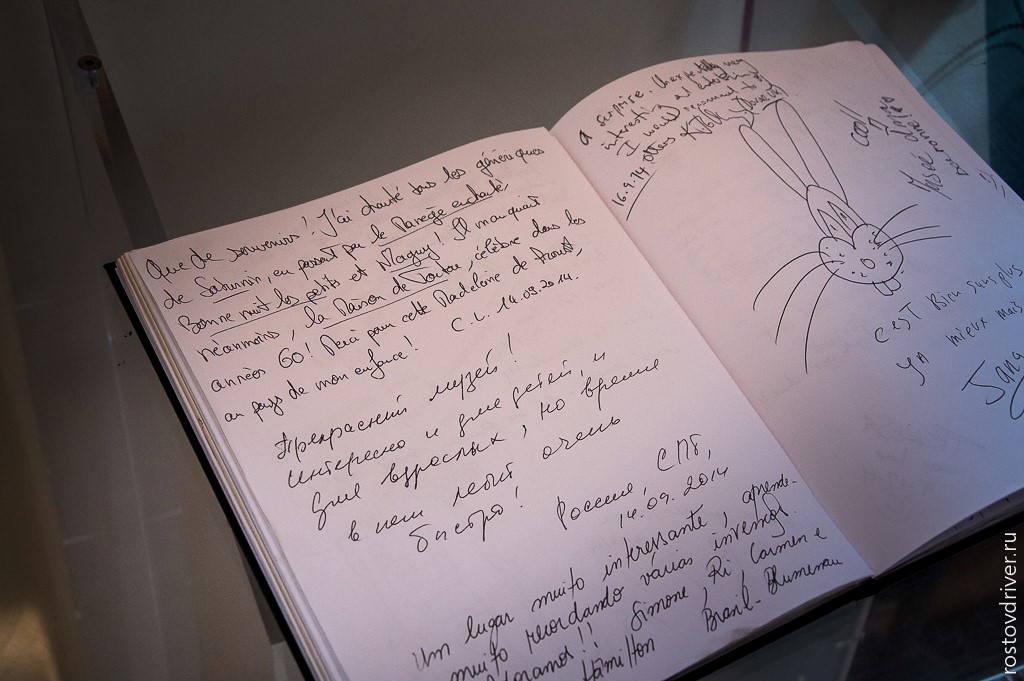 Que de souvenirs! J'ai chanté tous les génériques
de Saturnin, en passant par le Manège enchanté,
Bonne nuit les petits et Naguy! Il manquait
néanmoins, la Maison de Toutou, célèbre dans les
années 60! Merci pour cette Madeleine de Proust,
au pays de mon enfance! C.L. 14.09.2014.
Прекрасный музей!
Интересно и для детей, и
для взрослых, но время
в нем летит очень
быстро!
Россия, СПб,
14.09.2014
Um lugar muito interessante, aprende-
muito recordando várias
!! Simone, Ri, Carmen e
Hamilton Brasil - Blumenau
a surprise. Unexpectedly very
interesting and entertaining
I would recommend to
others
16.9.14
cool!
C'EST Bien sans plus
YA mieux mais
Jana
rostovdriver.ru